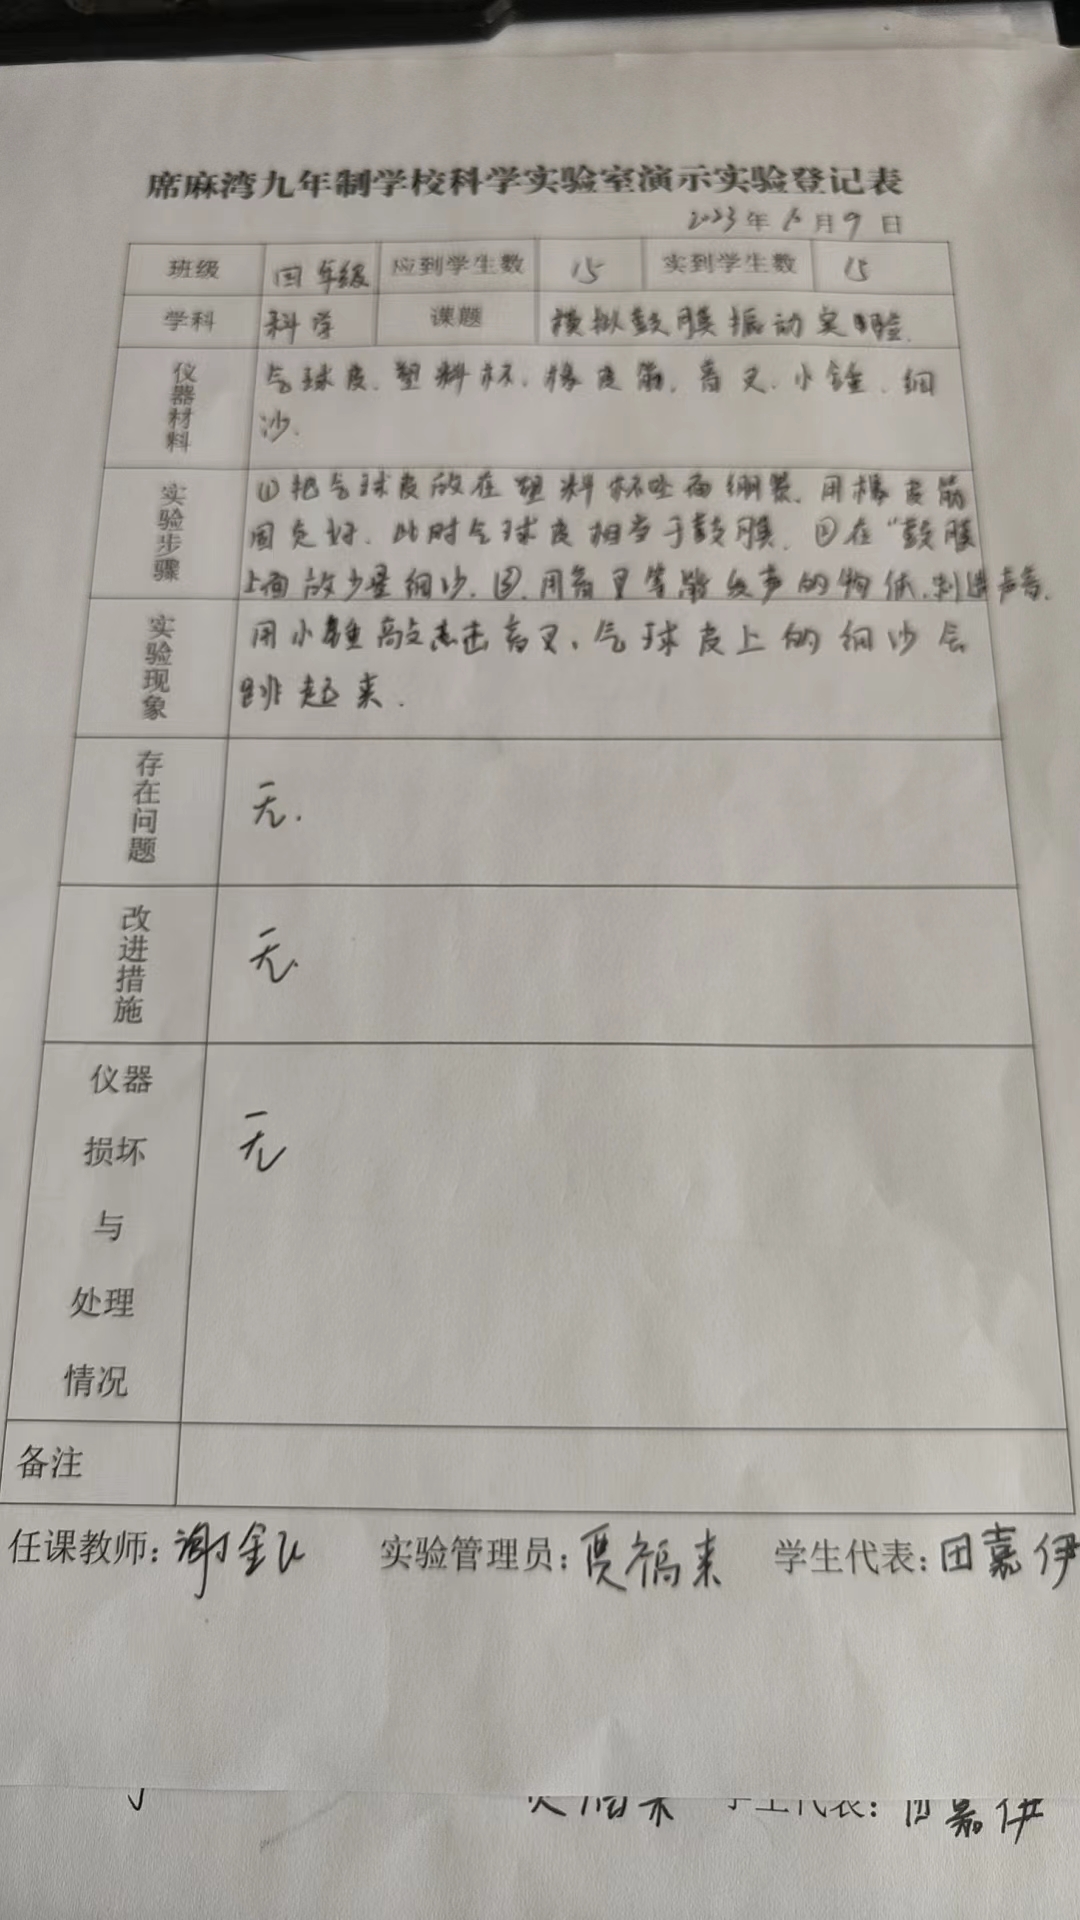 席麻湾九年制学校科学实验室演示实验登记表
2023年 月9日
班级 四年级 应到学生数 15 实到学生数 15
学科 科学 课题 模拟鼓膜振动实验.
仪器材料 气球皮、塑料杯、橡皮筋、音叉、小锤、细
沙.
实验步骤 ①把气球皮放在塑料杯上面绷紧、用橡皮筋
固定好、此时气球皮相当于鼓膜、②在“鼓膜
上面放少量细沙、③、用音叉等能发声的物体、制造声音、
实验现象 用小锤敲击音叉、气球皮上的细沙会
跳起来.
存在问题 无.
改进措施 无.
仪器
损坏 无
与
处理
情况
备注
任课教师:谢 实验管理员:贾福来 学生代表:田嘉伊
学生代表: 田嘉伊